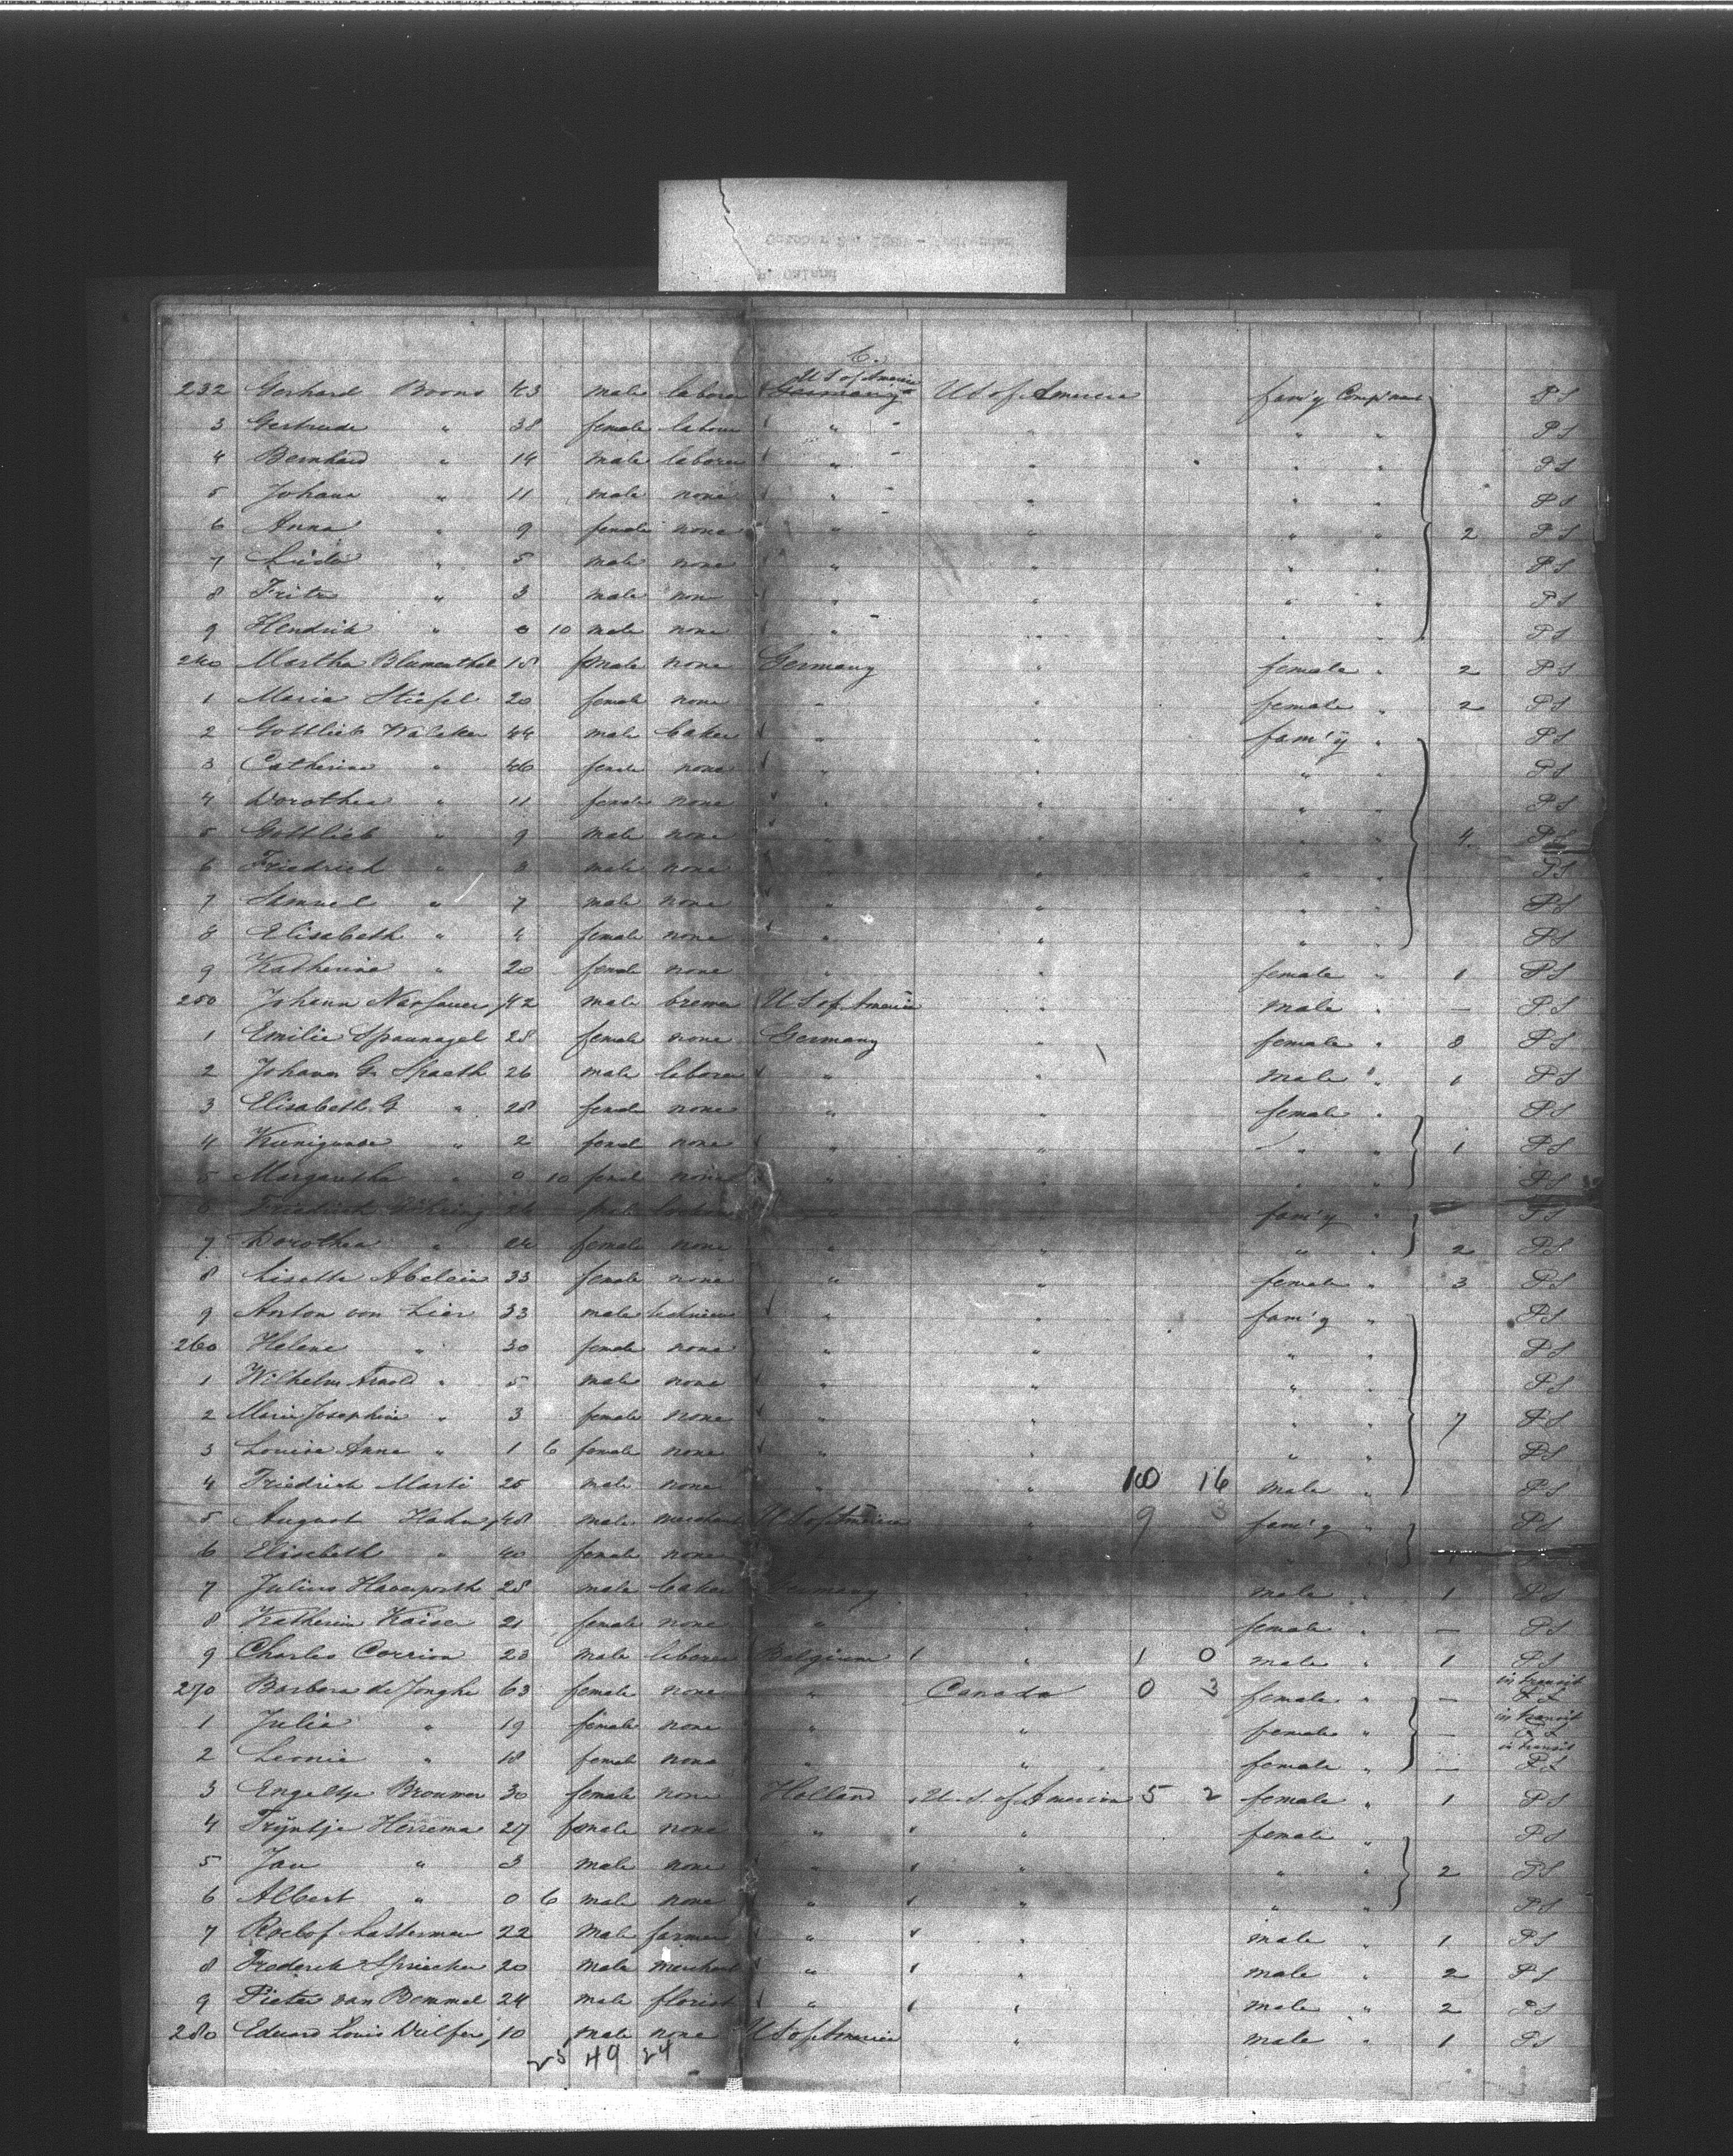 6.
232 Gerhard Boons 43 male laborer U S of America Germany U S of America fam'y Comp'ment P S
3 Gertrude " 38 female labour " " " " P S
4 Bernhard " 14 male laborer " " " " P S
5 Johann " 11 male none " " " " P S
6 Anna " 9 female none " " " " 2 P S
7 " 5 male none " " " " P S
8 Fritz " 3 male non " " " " P S
9 Hendrik " 0 10 male none " " " " P S
240 Martha Blumenthal 18 female none Germany " female " 2 P S
1 Maria Stiefel 20 female none " " female " 2 P S
2 Gottlieb Walcker 44 male baker " " fam'y " P S
3 Catherine " 46 female none " " " " P S
4 Dorothea " 11 female none " " " " P S
5 Gottlieb " 9 male none " " " " 4 P S
6 Friedrich " 8 male none " " " " P S
7 Samuel " 7 male none " " " " P S
8 Elisabeth " 4 female none " " " " P S
9 Katherine " 20 female none " " female " 1 P S
250 Johann 42 male brewer U S of America " male " — P S
1 Emilie Spaunagel 28 female none Germany " female " 8 P S
2 Johann G. Spaeth 26 male laborer " " male " 1 P S
3 Elisabeth G " 28 female none " " female " P S
4 Kunigunde " 2 female none " " " " 1 P S
5 Margaretha " 0 10 female none " " " " P S
6 Friedrich male " " fam'y " P S
7 Dorothea " female none " " " " 2 P S
8 Lisette Abelein 33 female none " " female " 3 P S
9 Anton von Lier 33 male " " fam'y " P S
260 Helene " 30 female none " " " " P S
1 Wilhelm Arnold " 5 male none " " " " P S
2 Marie Josephine " 3 female none " " " " 7 P S
3 Louise Anna " 1 6 female none " " " " P S
4 Friedrich Marti 25 male none " " 10 16 male " P S
5 August Hahn 48 male merchant U S of America " 9 3 fam'y " P S
6 Elisabeth " 40 female none " "
7 Julius Haverporth 28 male baker Germany " male " 1 P S
8 Katherin Kaiser 21 female none " " female " — P S
9 Charles Corrion 23 male laborer Belgium " 1 0 male " 1 P S
270 Barbara de Jonghe 63 female none " Canada 0 3 female " — in transit
1 Julia " 19 female none " " female " — in transit
2 Leonie " 18 female none " " female " — in transit
3 Engeltje Brouwer 30 female none Holland U. S. of America 5 2 female " 1 P S
4 Trijntje Herrema 27 female none " " female " P S
5 Jan " 3 male none " " " " 2 P S
6 Albert " 0 6 male none " " " " P S
7 Roelof Latterman 22 male farmer " " male " 1 P S
8 Frederik Spriecker 20 male merchant " " male " 2 P S
9 Pieter van Bemmel 24 male florist " " male " 2 P S
280 Eduard Louis 10 male none U S of America " male " 1 P S
25 49 24